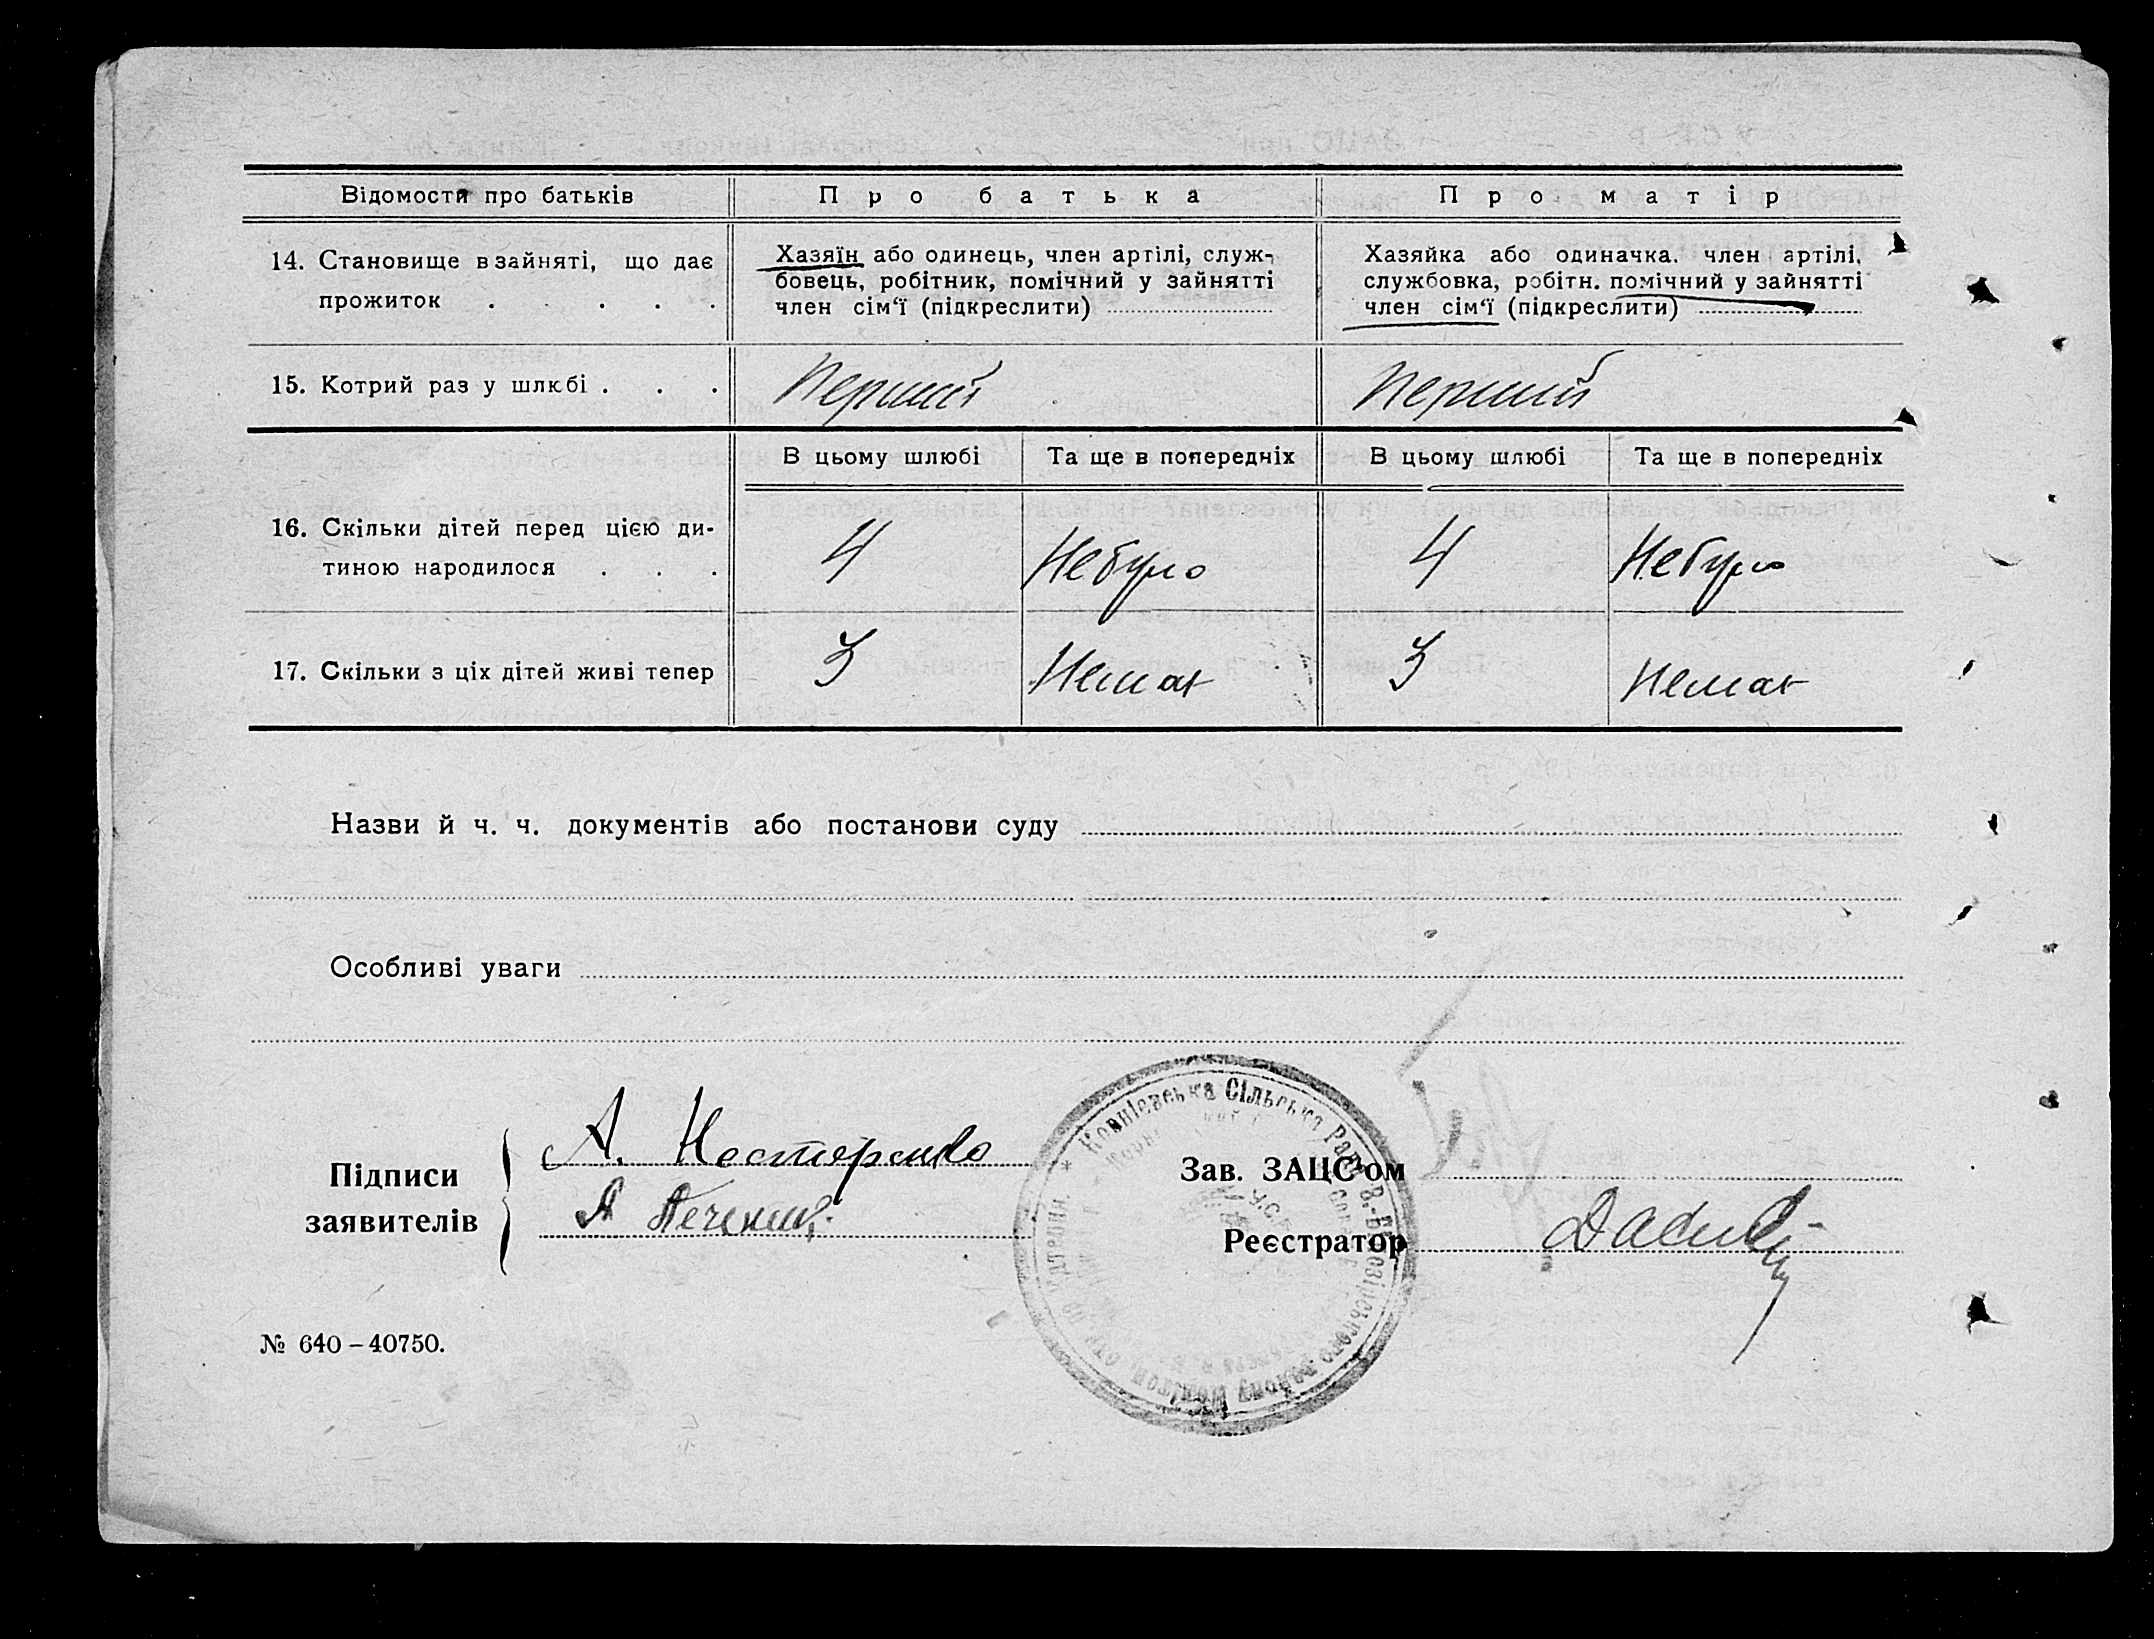 Відомости про батьків Про батька Про матір
14. Становище в зайняті, що дає прожиток . . . .
Хазяїн або одинець, член артілі, служ-
бовець, робітник, помічний у зайнятті
член сім'ї (підкреслити)
Хазяйка або одиначка, член артілі,
службовка, робітн. помічний у зайнятті
член сім'ї (підкреслити)
15. Котрий раз у шлюбі . . . Перший Перший
В цьому шлюбі Та ще в попередніх В цьому шлюбі Та ще в попередніх
16. Скільки дітей перед цією ди-
тиною народилося . . . 4 Небуло 4 Небуло
17. Скільки з ціх дітей живі тепер 3 Немає 3 Немає
Назви й ч. ч. документів або постанови суду
Особливі уваги
Підписи
заявителів
А. Нестеренко
А Печениц
Корнієвська Сільська Рада В.-Багозірського району
У.С.Р.
Зав. ЗАЦС'ом
Реєстратор
№ 640 – 40750.